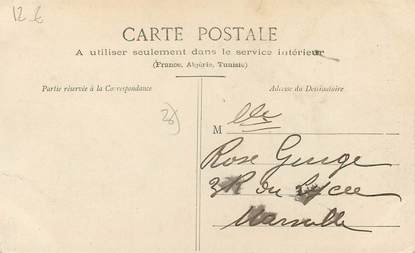 12 €
CARTE POSTALE
A utiliser seulement dans le service intérieur
(France, Algérie, Tunisie)
Partie réservée à la Correspondance
Adresse du Destinataire
M lle
Rose
3 R du Lycée
Marseille